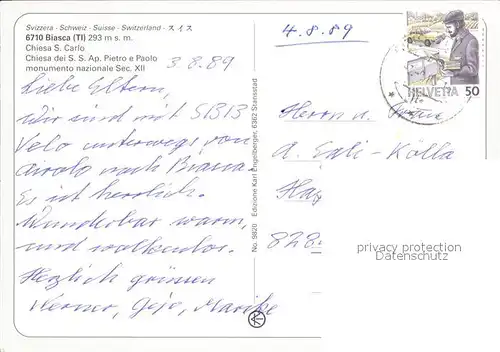 Svizzera - Schweiz - Suisse - Switzerland - スイス
6710 Biasca (TI) 293 m s. m.
Chiesa S. Carlo
Chiesa dei S. S. Ap. Pietro e Paolo
monumento nazionale Sec. XII
3.8.89
4.8.89
Liebe Eltern,
Wir sind mit SBB
Velo unterwegs von
Airolo nach Biasca.
Es ist herrlich.
Wunderbar warm,
und wolkenlos.
Herzlich grüssen
Werner, Marike
No. 9820 Edizione Karl Engelberger, 6362 Stansstad
HELVETIA 50
Herrn u. Frau
A. Kölla
828
privacy protection
Datenschutz